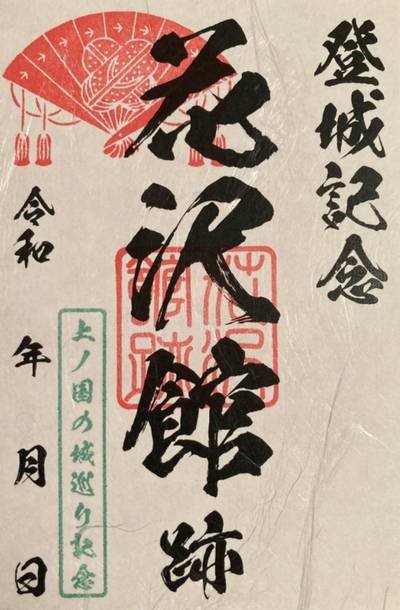 登城記念
花沢館跡
花沢館跡
上ノ国の城巡り記念
令和 年 月 日